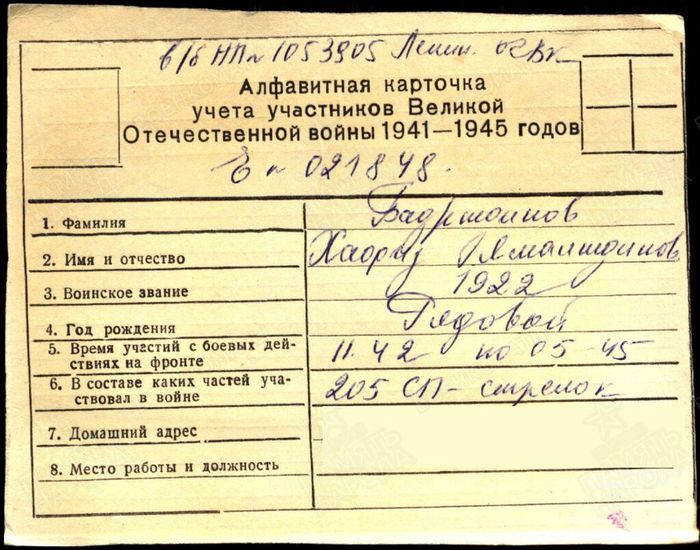 в/б НП № 1053905 Ленин. ОГВК
Алфавитная карточка
учета участников Великой
Отечественной войны 1941—1945 годов
Е № 021848.
1. Фамилия Бадртдинов
2. Имя и отчество
3. Воинское звание 1922
4. Год рождения Рядовой
5. Время участий с боевых дей-
ствиях на фронте 11.42 по 05-45
6. В составе каких частей уча-
ствовал в войне 205 СП - стрелок
7. Домашний адрес
8. Место работы и должность